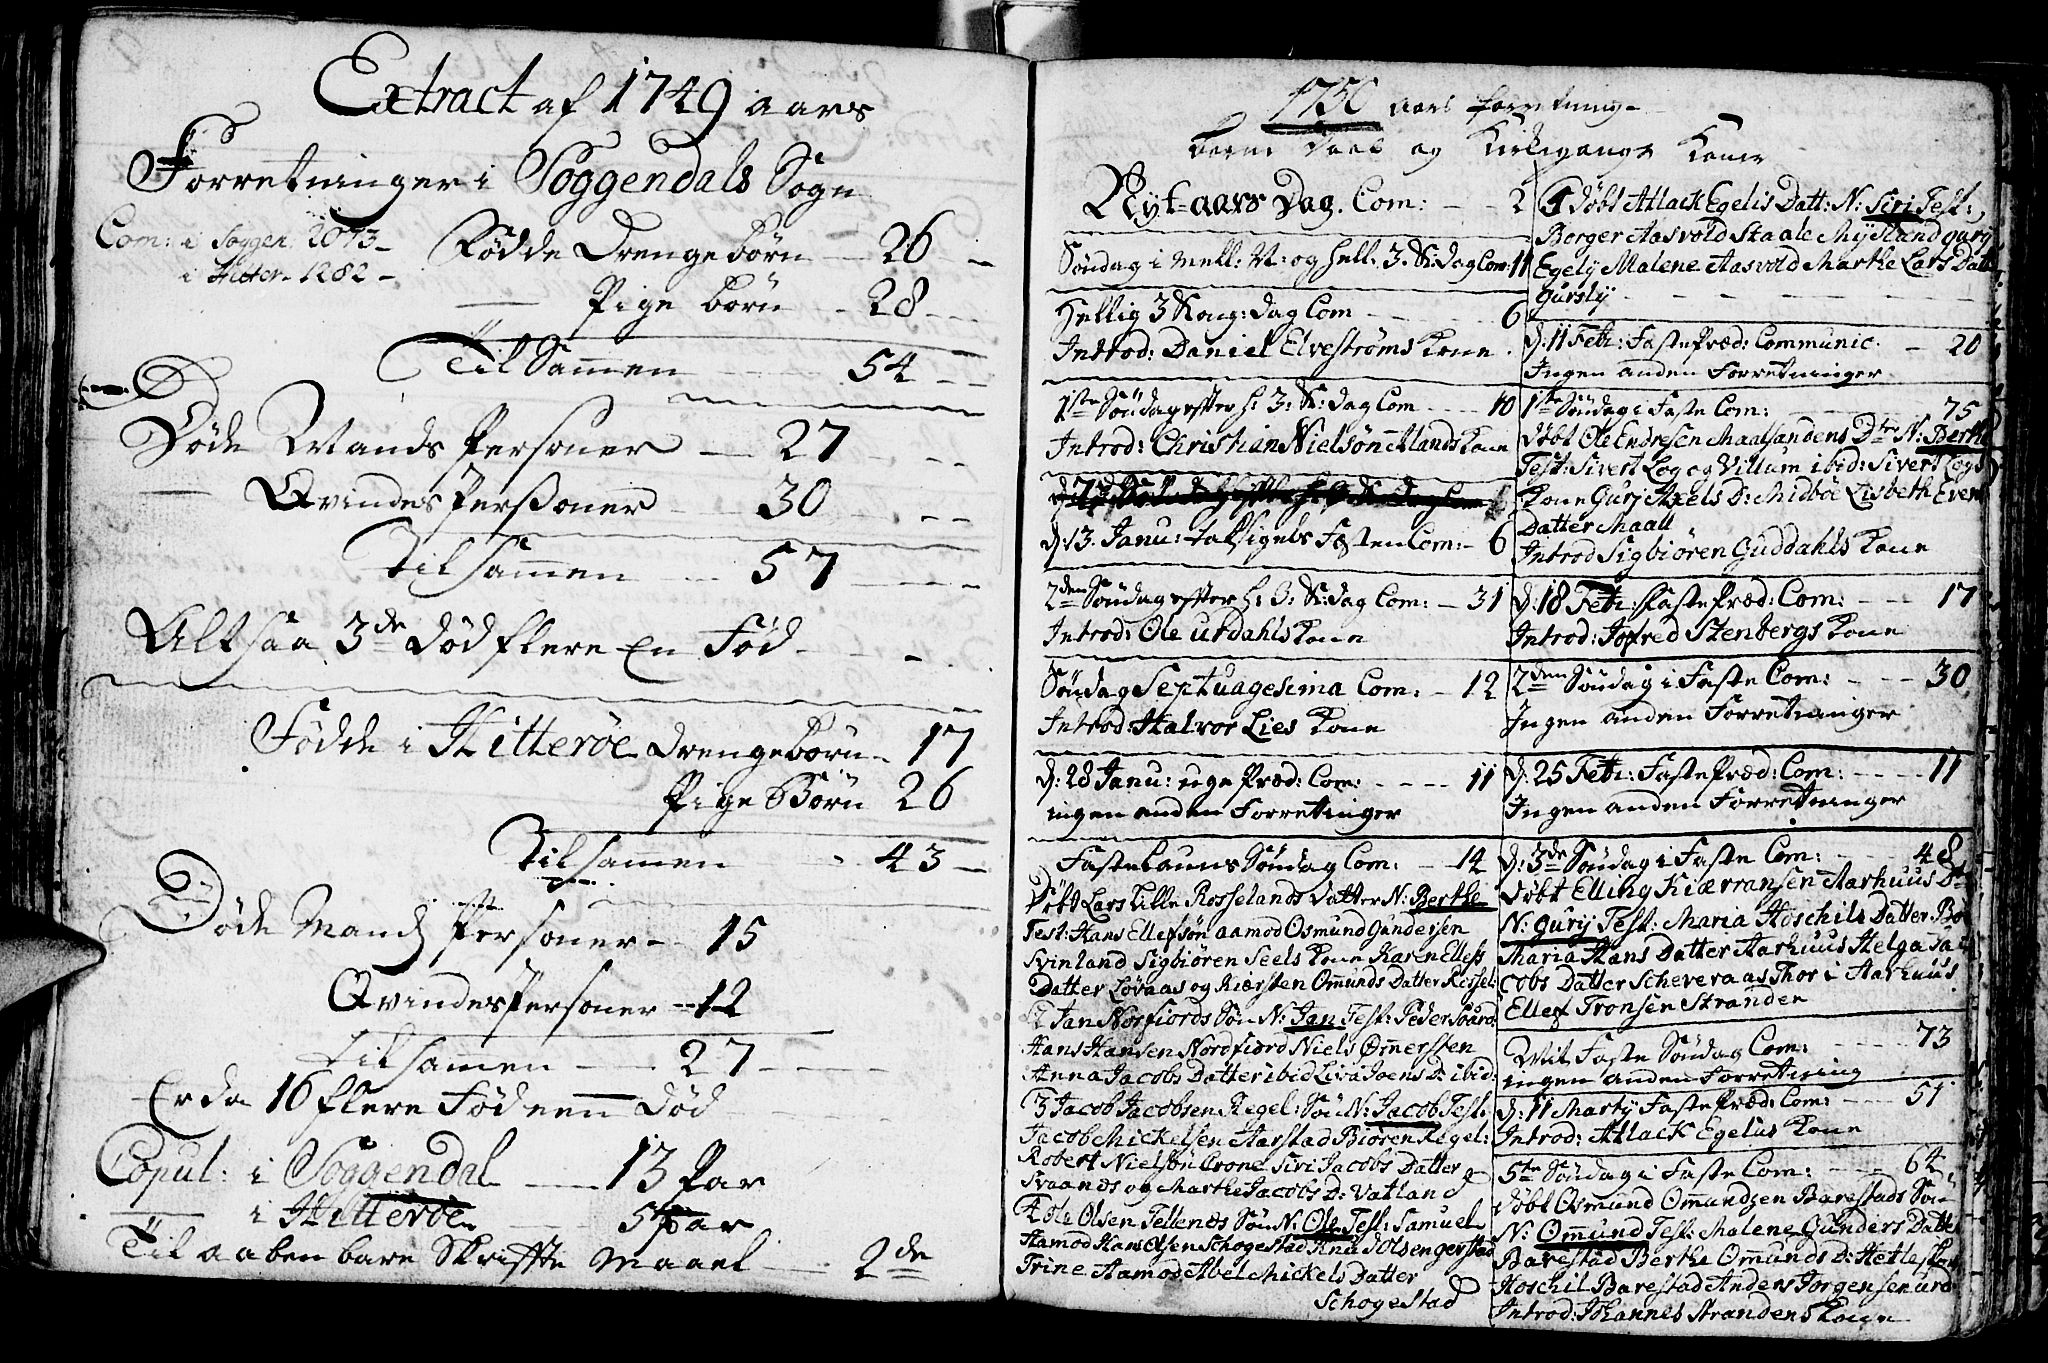 Extract af 1749 aars
Forretninger i Soggendals Sogn
Com: i Soggen: 2013 Födde Drengebörn 26
i Hitter 1282 Pige börn 28
Til Samen 54
Döde Mands Personer 27
Qvindes Personer 30
Til samen 57
Altsaa 3de död flere en Fød
Födde i Hitteröe Drengebörn 17
Pige Börn 26
Til samen 43
Döde Mands Personer 15
Qvindes Personer 12
Til samen 27
Er da 16 flere Föd enn Död
Copul: i Soggendal 13 Par
i Hitteröe 5 Par
Til aabenbare Skriffte Maael 2de
1750 aars forretning
Kirkegangs Koner
Nyt-aars Dag. Com: 2
Söndag i mell: N: og hell: 3. K: dag Com: 11
Hellig 3 Kong: dag Com 6
Introd: Daniel Elveströms Kone
1ste Söndag efter h: 3: K: dag Com 10
Introd: Christian Nielsön Alands Kone
d: 13. Janu: taksigels Festen Com: 6
2den Söndag efter h: 3: K: dag Com: 31
Introd: Ole Urdahls Kone
Söndag Septuagesima Com: 12
Introd: Halvor Lies Kone
d: 28 Janu: uge Præd: Com: 11
ingen anden Forretninger
Fastelauns Söndag Com: 14
Döbt Lars Lille Rosselands Datter N: Berthe
Test: Hans Ellefsön Aamod Osmund Gundersen
Svinland Sigbiören Seels Kone Karen Ellefs
Datter Lövaas og Kiersten Omunds Datter Rossel:
2 Jan Norfiords Sön N: Jan Test: Peder Svård
Hans Hansen Nordfiord Niels Omersten
Anna Jacobs Datter ibid Liva Joens D: ibid:
3 Jacob Jacobsen Regel: Sön N: Jacob Test:
Jacob Mickelsen Aarstad Biören Regel:
Robert Nielsön Brone Siri Jacobs Datter
Svaanes og Marthe Jacobs D: Vatland
4 Ole Olsen Tellenes Sön N: Ole Test: Samuel
Hamod Hans Olsen Schogestad Knud Olsen Gerstad
Trine Aamod Abel Mickels Datter
Schogestad
Döbt Atlack Egelis Datt: N: Siri Test:
Borger Aasvold Staale Mysland Gury
Egely Malene Aasvold Marthe Lars Datt
Gursly
d: 11 Feb: Faste Præd: Communic: 20
Ingen anden Forretninger
1ste Söndag i Faste Com: 75
Döbt Ole Endresen Maalsandens Dtr N: Berthe
Test: Sivert Log og Villum ibid: Sivert Logs
Kone Gury Axels D: Midböe Lisbeth Evens
Datter Maall
Introd Sigbiören Guddahls Kone
d: 18 Feb: Faste Præd: Com: 17
Introd: Jofred Stenbergs Kone
2den Söndag i Faste Com: 30
Ingen anden Forretninger
d: 25 Feb: Faste Præd: Com: 11
Ingen anden Forretninger
d: 3de Söndag i Faste Com: 48
Döbt Elling Kiærransen Aarhuus Dt
N: Gury Test: Maria Hoschils Datter Bö
Maria Hans Datter Aarhuus Helga Ja
cobs Datter Scheveraas Thor i Aarhuus
Ellef Tronsen Stranden
Mit Faste Söndag Com: 73
ingen anden Forretning
d: 11 Marty Faste Præd: Com: 51
Introd: Atlack Egelus Kone
5te Söndag i Faste Com: 64
Döbt Osmund Omundsen Barestads Sön
N: Omund Test: Malene Gunders Datter
Barestad Berthe Omunds D: Hetleskou
Hoschil Barestad Anders Jorgensen urd
Introd: Johannes Strandens Kone